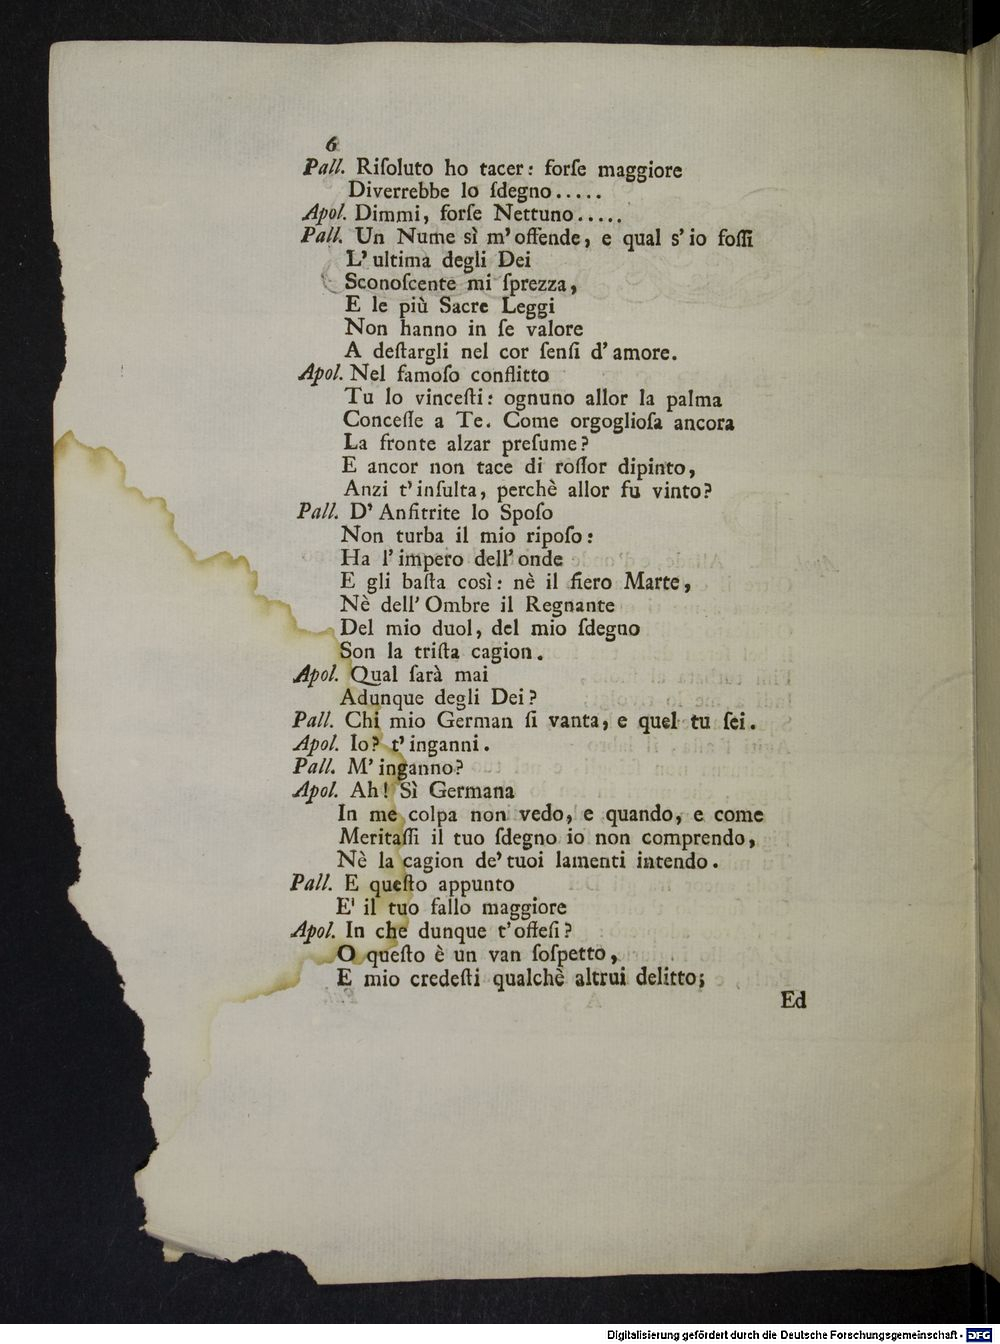 6
Pall. Riſoluto ho tacer: forſe maggiore
Diverrebbe lo ſdegno.....
Apol. Dimmi, forſe Nettuno.....
Pall. Un Nume sì m' offende, e qual s' io foſſi
L' ultima degli Dei
Sconoſcente mi ſprezza,
E le più Sacre Leggi
Non hanno in ſe valore
A deſtargli nel cor ſenſi d' amore.
Apol. Nel famoſo conflitto
Tu lo vinceſti: ognuno allor la palma
Conceſſe a Te. Come orgoglioſa ancora
La fronte alzar preſume?
E ancor non tace di roſſor dipinto,
Anzi t' inſulta, perchè allor fu vinto?
Pall. D' Anfitrite lo Spoſo
Non turba il mio ripoſo:
Ha l' impero dell' onde
E gli baſta così: nè il fiero Marte,
Nè dell' Ombre il Regnante
Del mio duol, del mio ſdegno
Son la triſta cagion.
Apol. Qual ſarà mai
Adunque degli Dei?
Pall. Chi mio German ſi vanta, e quel tu ſei.
Apol. Io? t' inganni.
Pall. M' inganno?
Apol. Ah! Sì Germana
In me colpa non vedo, e quando, e come
Meritaſſi il tuo ſdegno io non comprendo,
Nè la cagion de' tuoi lamenti intendo.
Pall. E queſto appunto
E' il tuo fallo maggiore
Apol. In che dunque t' offeſi?
O queſto è un van ſoſpetto,
E mio credeſti qualchè altrui delitto;
Ed
Digitalisierung gefördert durch die Deutsche Forschungsgemeinschaft - DFG